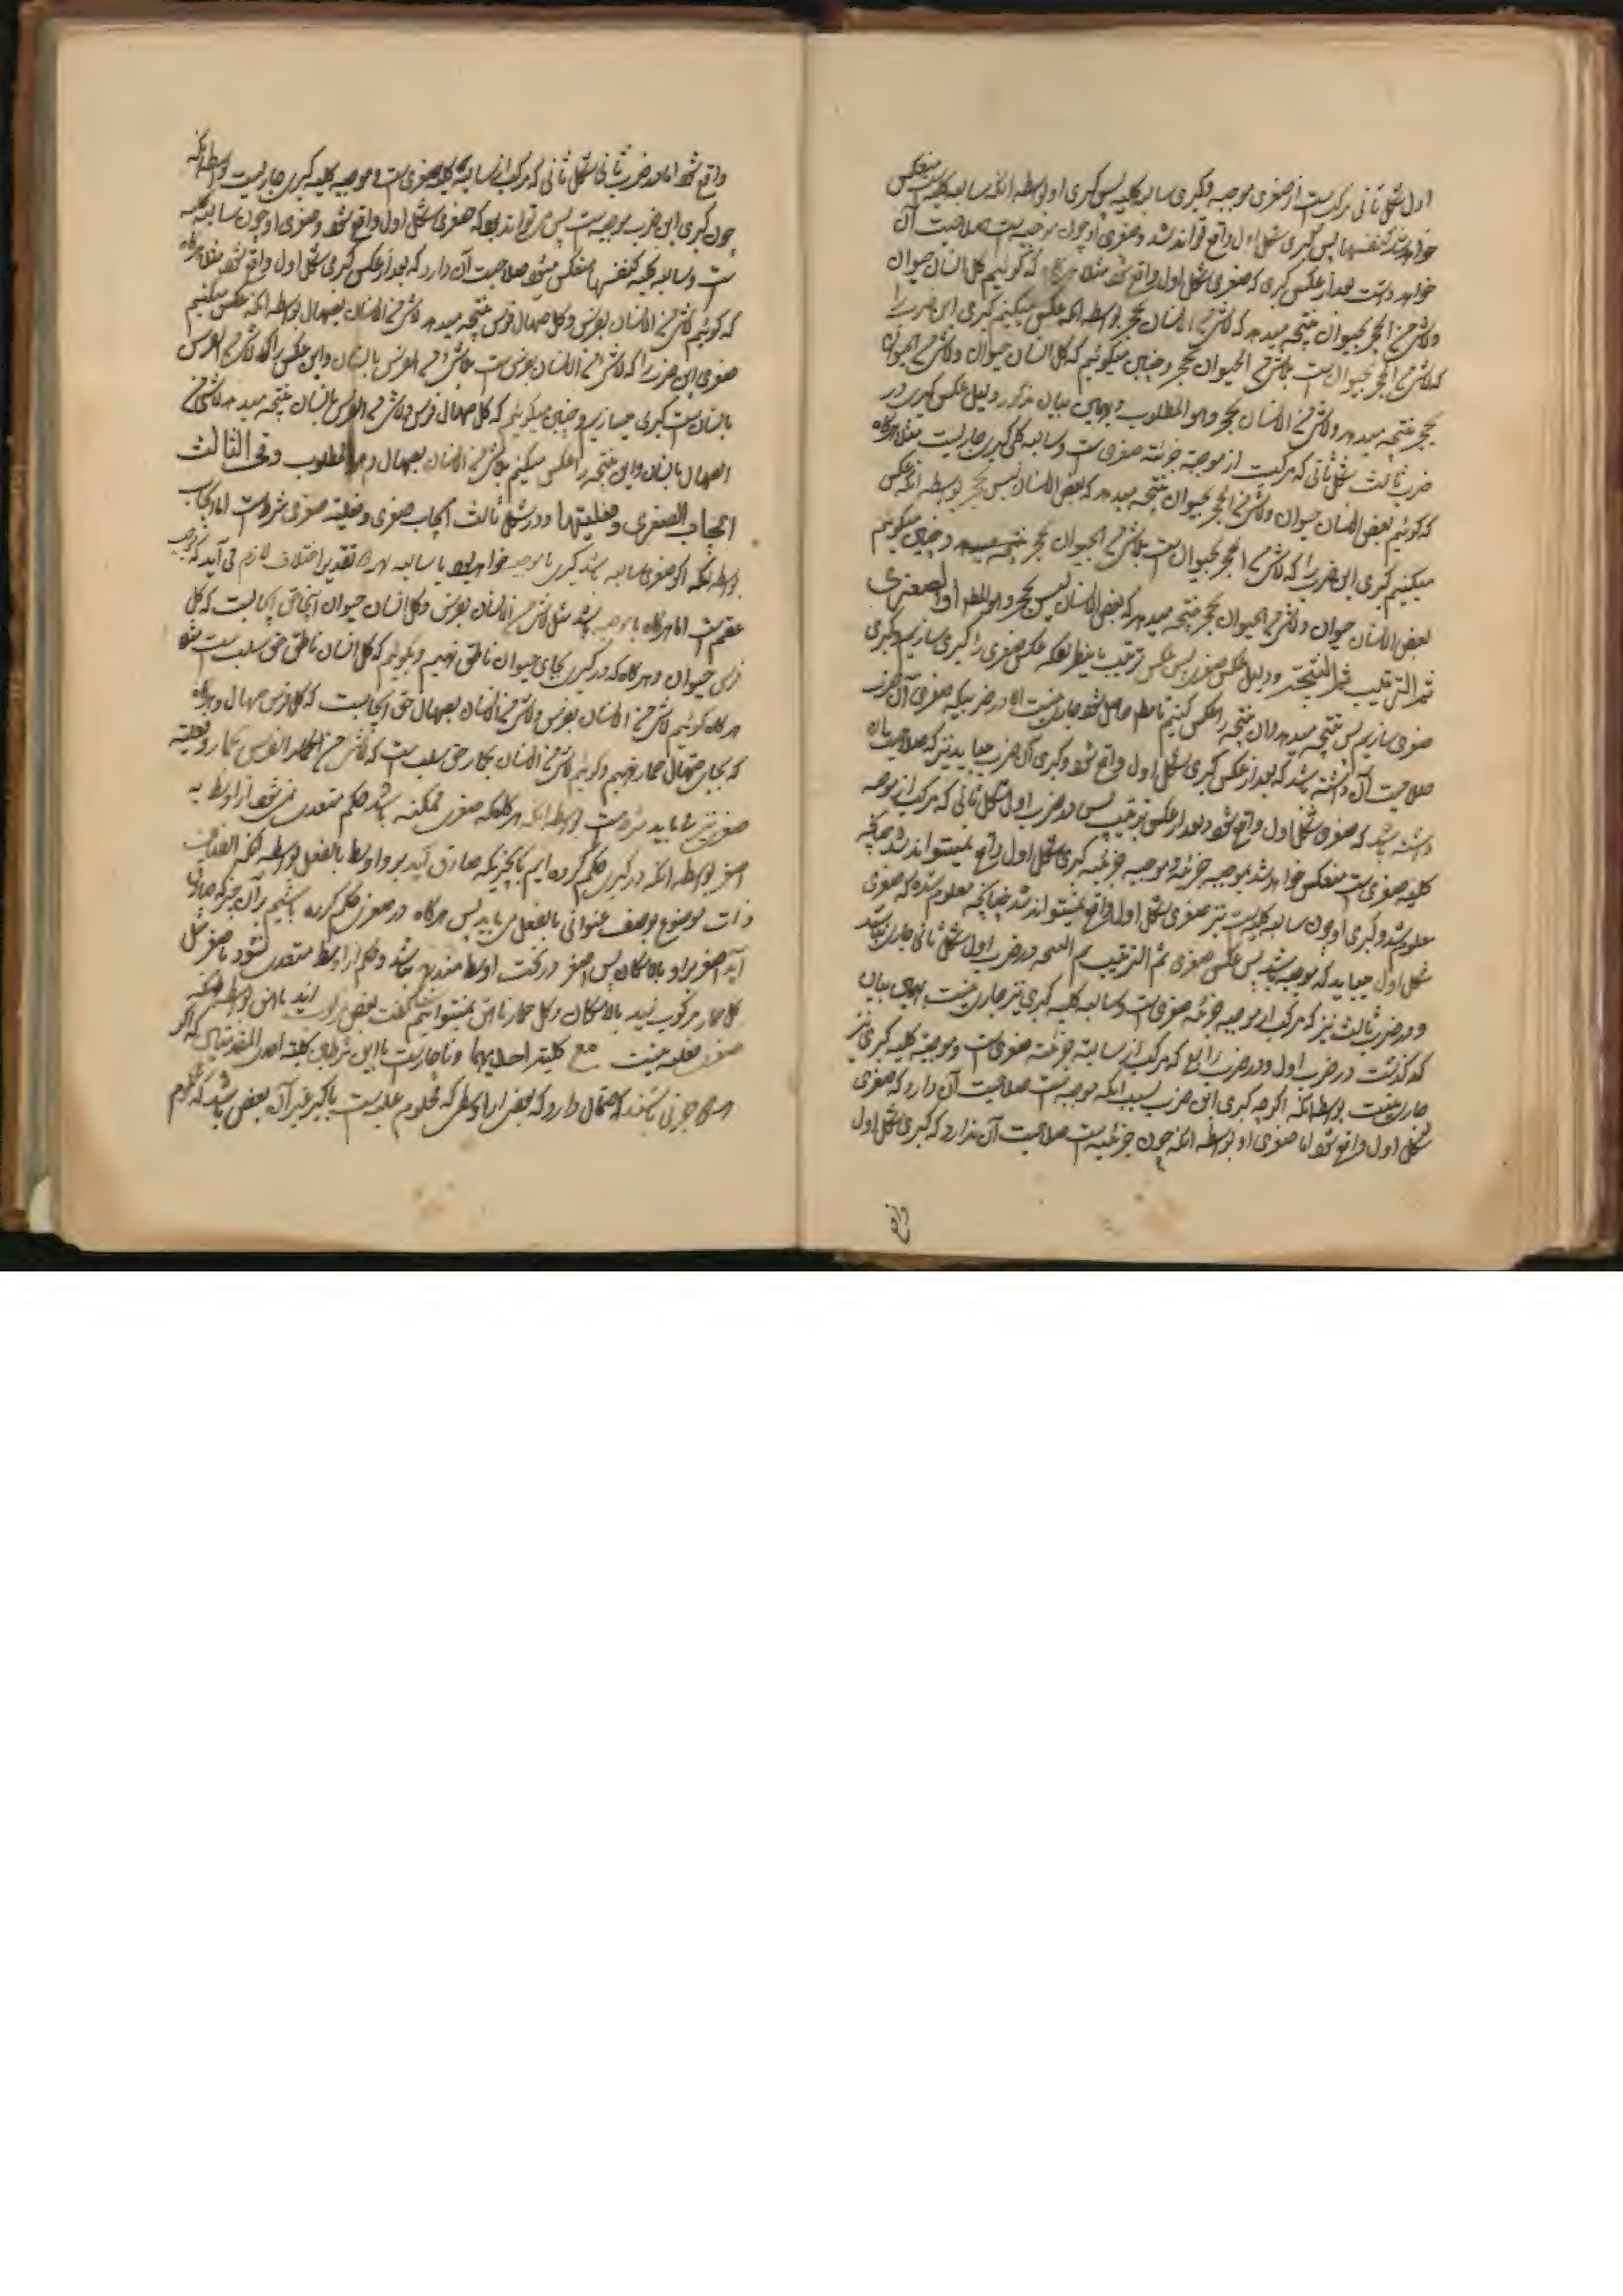 اول شکل ثانی مرکبست از صغری موجبه و کبری سالبه کلیه پس کبری او بواسطه آنکه سالبه کلیه است منعکس
خواهد شد کنفسها پس کبری شکل اول واقع تواند شد و صغری او چون موجبه است صلاحیت آن
خواهد داشت بعد از عکس کبری که صغری شکل اول واقع شود مثلا هرگاه که گوئیم کل انسان حیوان
ولاشئ من الحجر بحیوان نتیجه میدهد که لاشئ من الانسان بحجر بواسطه آنکه عکس میکنیم کبری این ضرب را
که لاشئ من الحجر بحیوان است بلاشئ من الحیوان بحجر و چنین میگوئیم که کل انسان حیوان ولاشئ من الحیوان
بحجر نتیجه میدهد ولاشئ من الانسان بحجر وهو المطلوب و بهمین بیان مذکور دلیل عکس کبری در
ضرب ثالث شکل ثانی که مرکبست از موجبه جزئیه صغری و سالبه کلیه کبری جاریست مثلا هرگاه
که گوئیم بعض الانسان حیوان ولاشئ من الحجر بحیوان نتیجه میدهد که بعض الانسان لیس بحجر بواسطه آنکه عکس
میکنیم کبری این ضرب را که لاشئ من الحجر بحیوان است بلاشئ من الحیوان بحجر و چنین میگوئیم
بعض الانسان حیوان ولاشئ من الحیوان بحجر نتیجه میدهد که بعض الانسان لیس بحجر وهو المط او الصغری
ثم الترتیب ثم النتیجة و دلیل عکس صغری پس عکس ترتیب باینطریقکه عکس صغری را کبری سازیم و کبری
صغری سازیم پس نتیجه میدهد و آن نتیجه را عکس کنیم تا مط حاصل شود جاری نیست الا در ضربیکه صغری آن ضرب
صلاحیت آن داشته باشد که بعد از عکس کبری شکل اول واقع شود و کبری آن ضرب میباید نیز که صلاحیت آن
داشته باشد که صغری شکل اول واقع شود و بعد از عکس ترتیب پس در ضرب اول شکل ثانی که مرکب از موجبه
کلیه صغری است منعکس خواهد شد بموجبه جزئیه و موجبه جزئیه کبری شکل اول واقع نمیتواند شد چنانکه
معلوم شد و کبری او چون سالبه کلیه است نیز صغری شکل اول واقع نمیتواند شد چنانکه معلوم شده که صغری
شکل اول میباید که موجبه باشد پس عکس صغری ثم الترتیب ثم النتیجه در ضرب اول شکل ثانی جاری نباشد
و در ضرب ثالث نیز که مرکب از موجبه جزئیه صغری و سالبه کلیه کبری نیز جاری نیست بهمین بیان
که گذشت در ضرب اول و در ضرب رابع که مرکب از سالبه جزئیه صغری است و موجبه کلیه کبری نیز
جاری نیست بواسطه آنکه اگرچه کبری این ضرب بسبب آنکه موجبه است صلاحیت آن دارد که صغری
شکل اول واقع شود اما صغری او بواسطه آنکه چون جزئیه است صلاحیت آن ندارد که کبری شکل اول
واقع شود اما در ضرب ثانی شکل ثانی که مرکب از سالبه کلیه صغری است و موجبه کلیه کبری جاریست بواسطه آنکه
چون کبری این ضرب موجبه است پس می تواند بود که صغری شکل اول واقع شود و صغری او چون سالبه کلیه
است و سالبه کلیه کنفسها منعکس میشود صلاحیت آن دارد که بعد از عکس کبری شکل اول واقع شود مثلا هرگاه
که گوئیم لاشئ من الانسان بفرس وکل صهال فرس نتیجه میدهد لاشئ من الانسان بصهال بواسطه آنکه عکس میکنیم
صغری این ضرب را که لاشئ من الانسان بفرس است بلاشئ من الفرس بانسان و این عکس را که لاشئ من الفرس
بانسان است کبری میسازیم و چنین میگوئیم که کل صهال فرس ولاشئ من الفرس بانسان نتیجه میدهد لاشئ من
الصهال بانسان و این نتیجه را عکس میکنیم بلاشئ من الانسان بصهال وهو المطلوب وفی الثالث
ایجاب الصغری وفعلیتها و در شکل ثالث ایجاب صغری و فعلیة صغری شرط است اما ایجاب
بواسطه آنکه اگر صغری سالبه باشد کبری یا موجبه خواهد بود یا سالبه بهر دو تقدیر اختلاف لازم می آید که موجب
عقم است اما هرگاه با موجبه باشد مثل لاشئ من الانسان بفرس وکل انسان حیوان اینجا حق ایجابست که کل
فرس حیوان و هرگاه که در کبری بجای حیوان ناطق نهیم و بگوئیم که کل انسان ناطق حق سلب است مثلا
هرگاه گوئیم لاشئ من الانسان بفرس ولاشئ من الانسان بصهال حق ایجابست که کل فرس صهال و هرگاه
که بجای صهال حمار نهیم و گوئیم لاشئ من الانسان بحمار حق سلب است که لاشئ من الفرس بحمار و فعلیة
صغری نیز میباید بواسطه آنکه هرگاه که صغری ممکنه باشد حکم متعدی نمی شود از اوسط به
اصغر بواسطه آنکه در کبری حکم کرده ایم بآنچیزیکه صادق آید بر او اوسط بالفعل بواسطه آنکه اتصاف
ذات موضوع بوصف عنوانی بالفعل می باید پس هرگاه در صغری حکم کرده باشیم بر آن چیز که صادق
آید اصغر بر او بالامکان پس اصغر در تحت اوسط مندرج نباشد و حکم از اوسط متعدی نشود باصغر مثل
کل حمار مرکوب زید بالامکان وکل حمار ناهق نمیتوانیم گفت بعض مرکوب زید ناهق بواسطه آنکه
صغری فعلیه نیست مع کلیة احدیهما و ناچار است با این شرط که کلیة احدی المقدمتین که اگر
هر دو جزئی باشند احتمال دارد که بعض از اوسط که محکوم علیه است باکبر غیر آن بعض باشد که محکوم